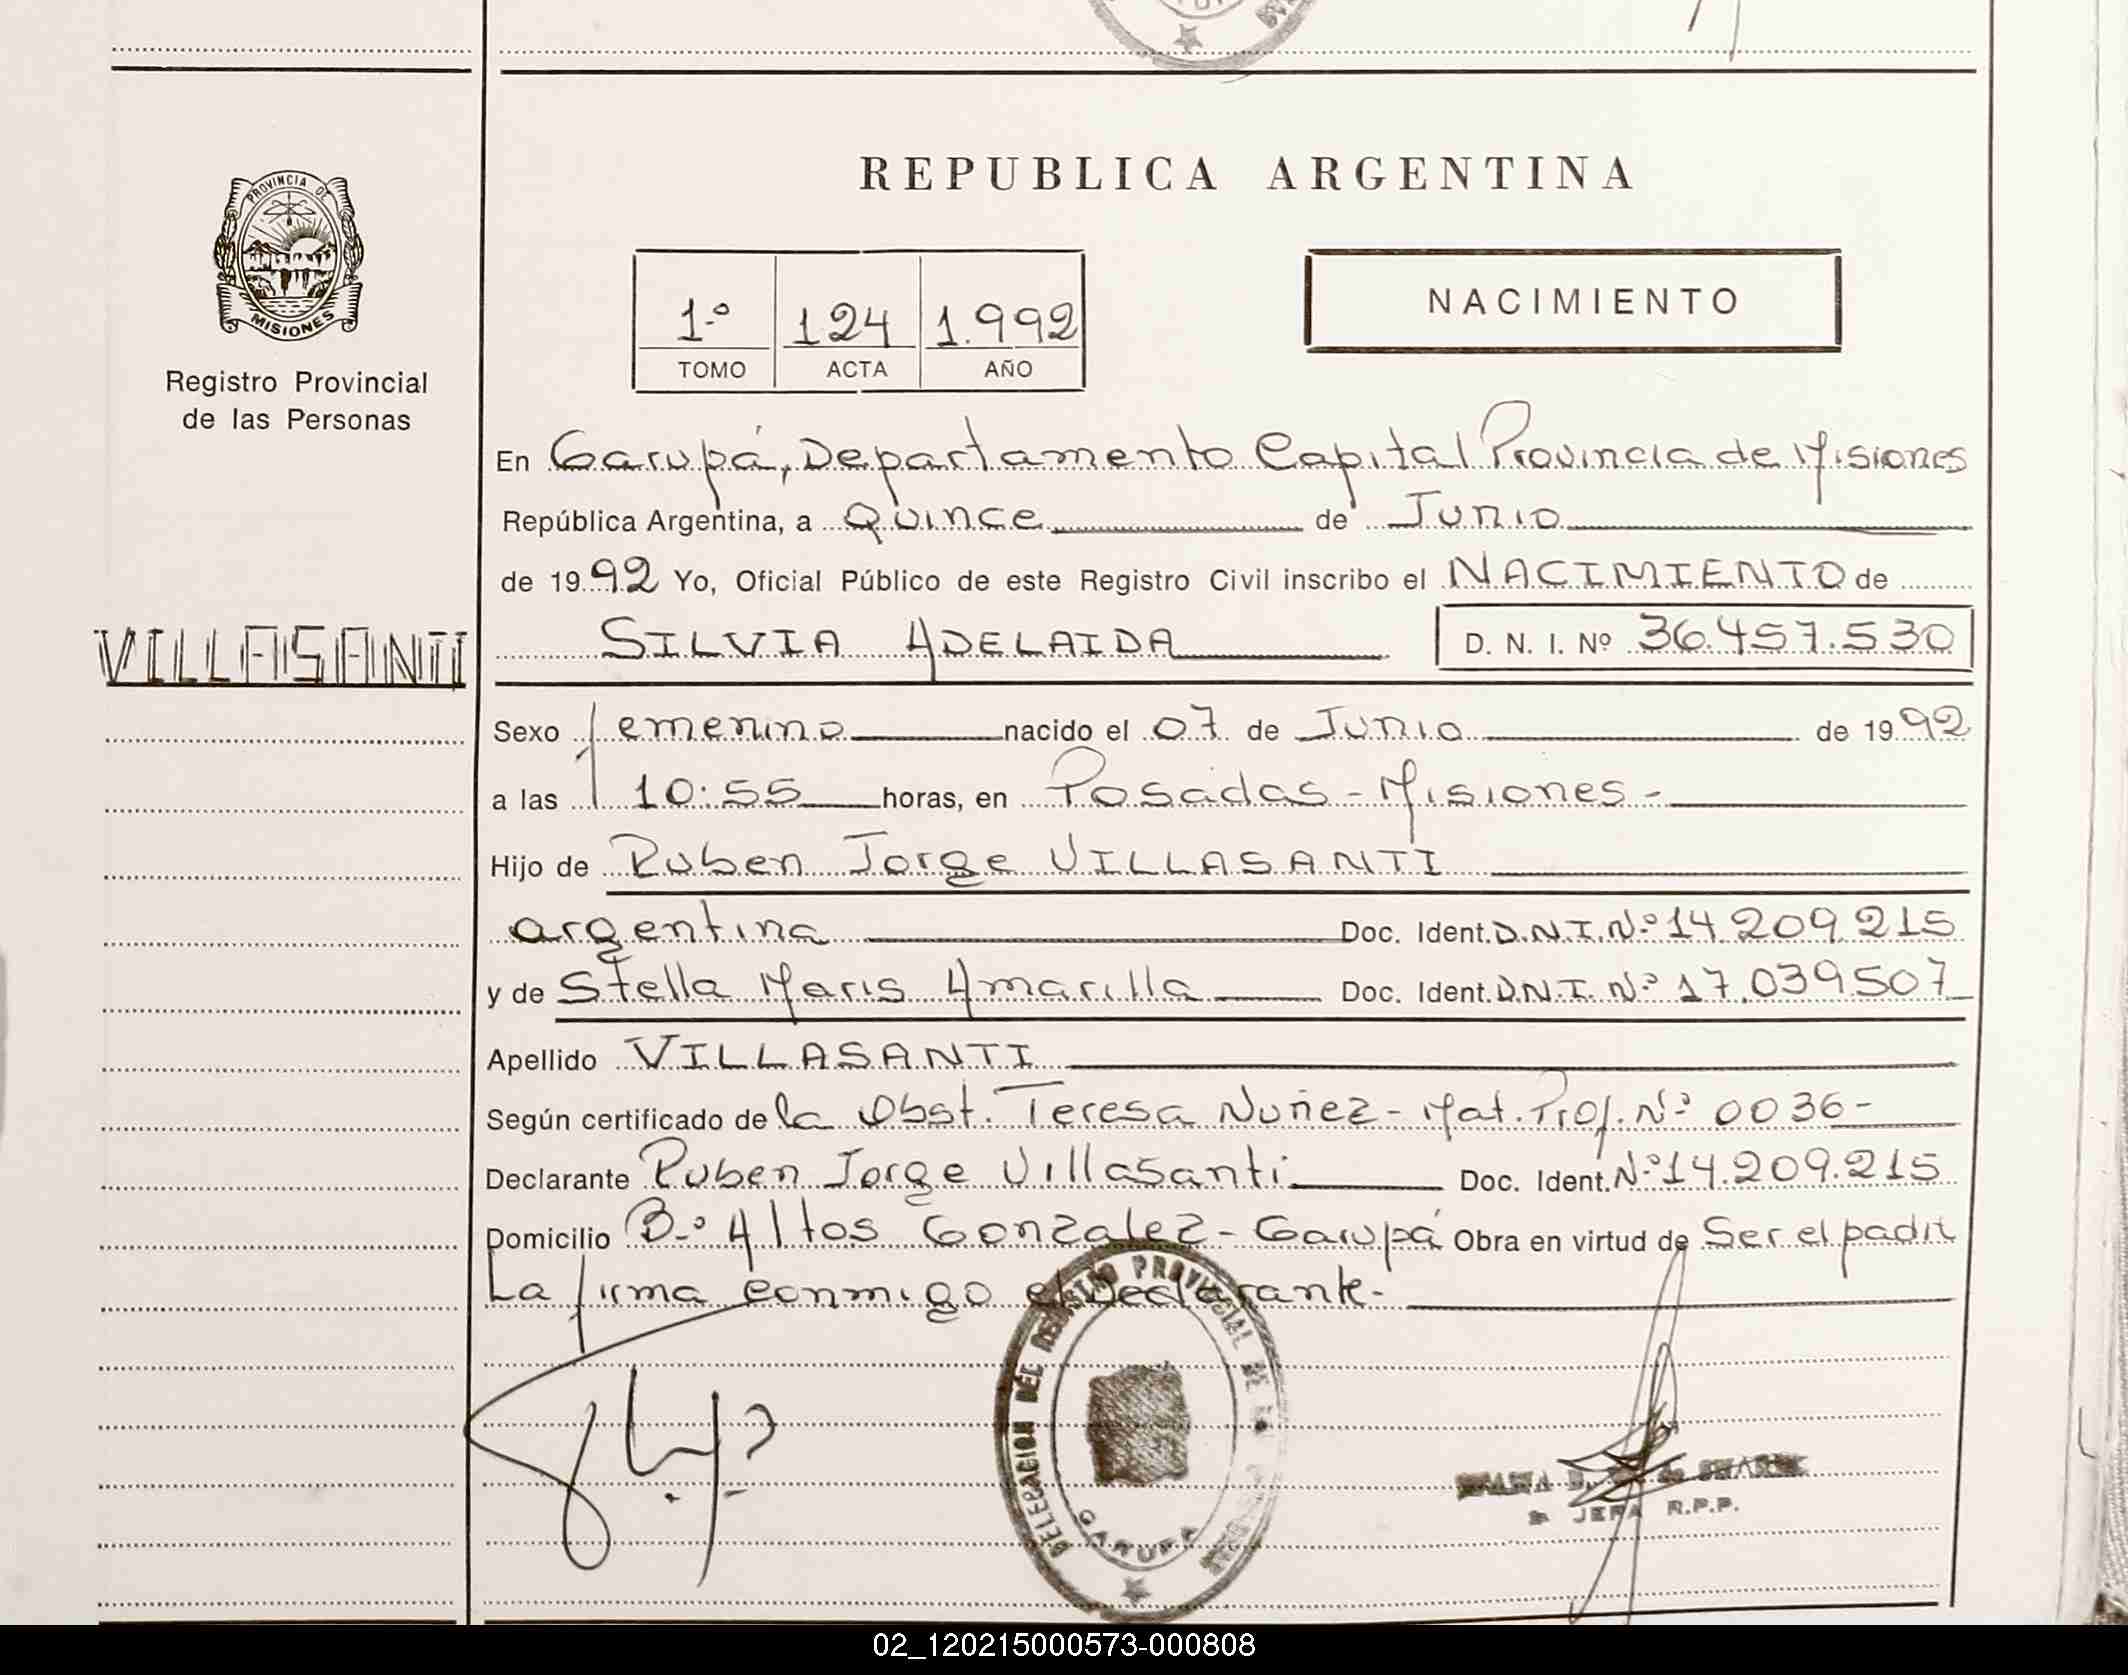 PROVINCIA DE
MISIONES
Registro Provincial
de las Personas
VILLASANTI
REPUBLICA ARGENTINA
1º 124 1.992
TOMO ACTA AÑO
NACIMIENTO
En Garupá, Departamento Capital Provincia de Misiones
República Argentina, a Quince de Junio
de 1992 Yo, Oficial Público de este Registro Civil inscribo el NACIMIENTO de
SILVIA ADELAIDA D. N. I. Nº 36.457.530
Sexo femenino nacido el 07 de Junio de 1992
a las 10:55 horas, en Posadas - Misiones -
Hijo de Ruben Jorge VILLASANTI
argentina Doc. Ident. D.N.I. Nº 14.209.215
y de Stella Maris Amarilla Doc. Ident. D.N.I. Nº 17.039507
Apellido VILLASANTI
Según certificado de la Obst. Teresa Nuñez - Mat. Prof. Nº 0036 -
Declarante Ruben Jorge Villasanti Doc. Ident. Nº 14.209.215
Domicilio Bº Altos Gonzalez - Garupá Obra en virtud de Ser el padre
La firma conmigo el Declarante.
DELEGACION DEL REGISTRO PROVINCIAL DE
GARUPA
JEFA R.P.P.
02_120215000573-000808